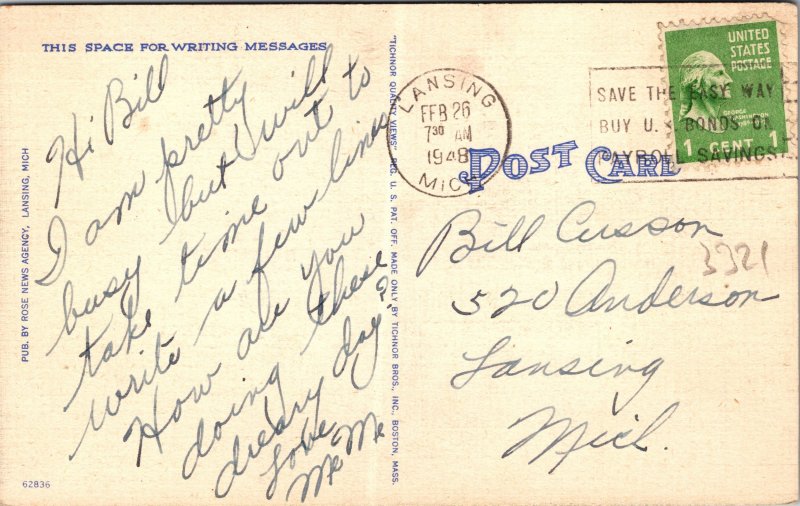 THIS SPACE FOR WRITING MESSAGES
Hi Bill
I am pretty
busy but will
take time out to
write a few lines
How are you
doing these
dreary day?
Love
Me Me
PUB. BY ROSE NEWS AGENCY, LANSING, MICH
62836
"TICHNOR QUALITY VIEWS" REG. U. S. PAT. OFF. MADE ONLY BY TICHNOR BROS., INC., BOSTON, MASS.
LANSING
FEB 26
7 30 AM
1948
MICH
SAVE THE EASY WAY
BUY U. S. BONDS ON
PAYROLL SAVINGS
UNITED
STATES
POSTAGE
GEORGE
WASHINGTON
1 CENT 1
POST CARD
Bill Cusson
3321
520 Anderson
Lansing
Mich.